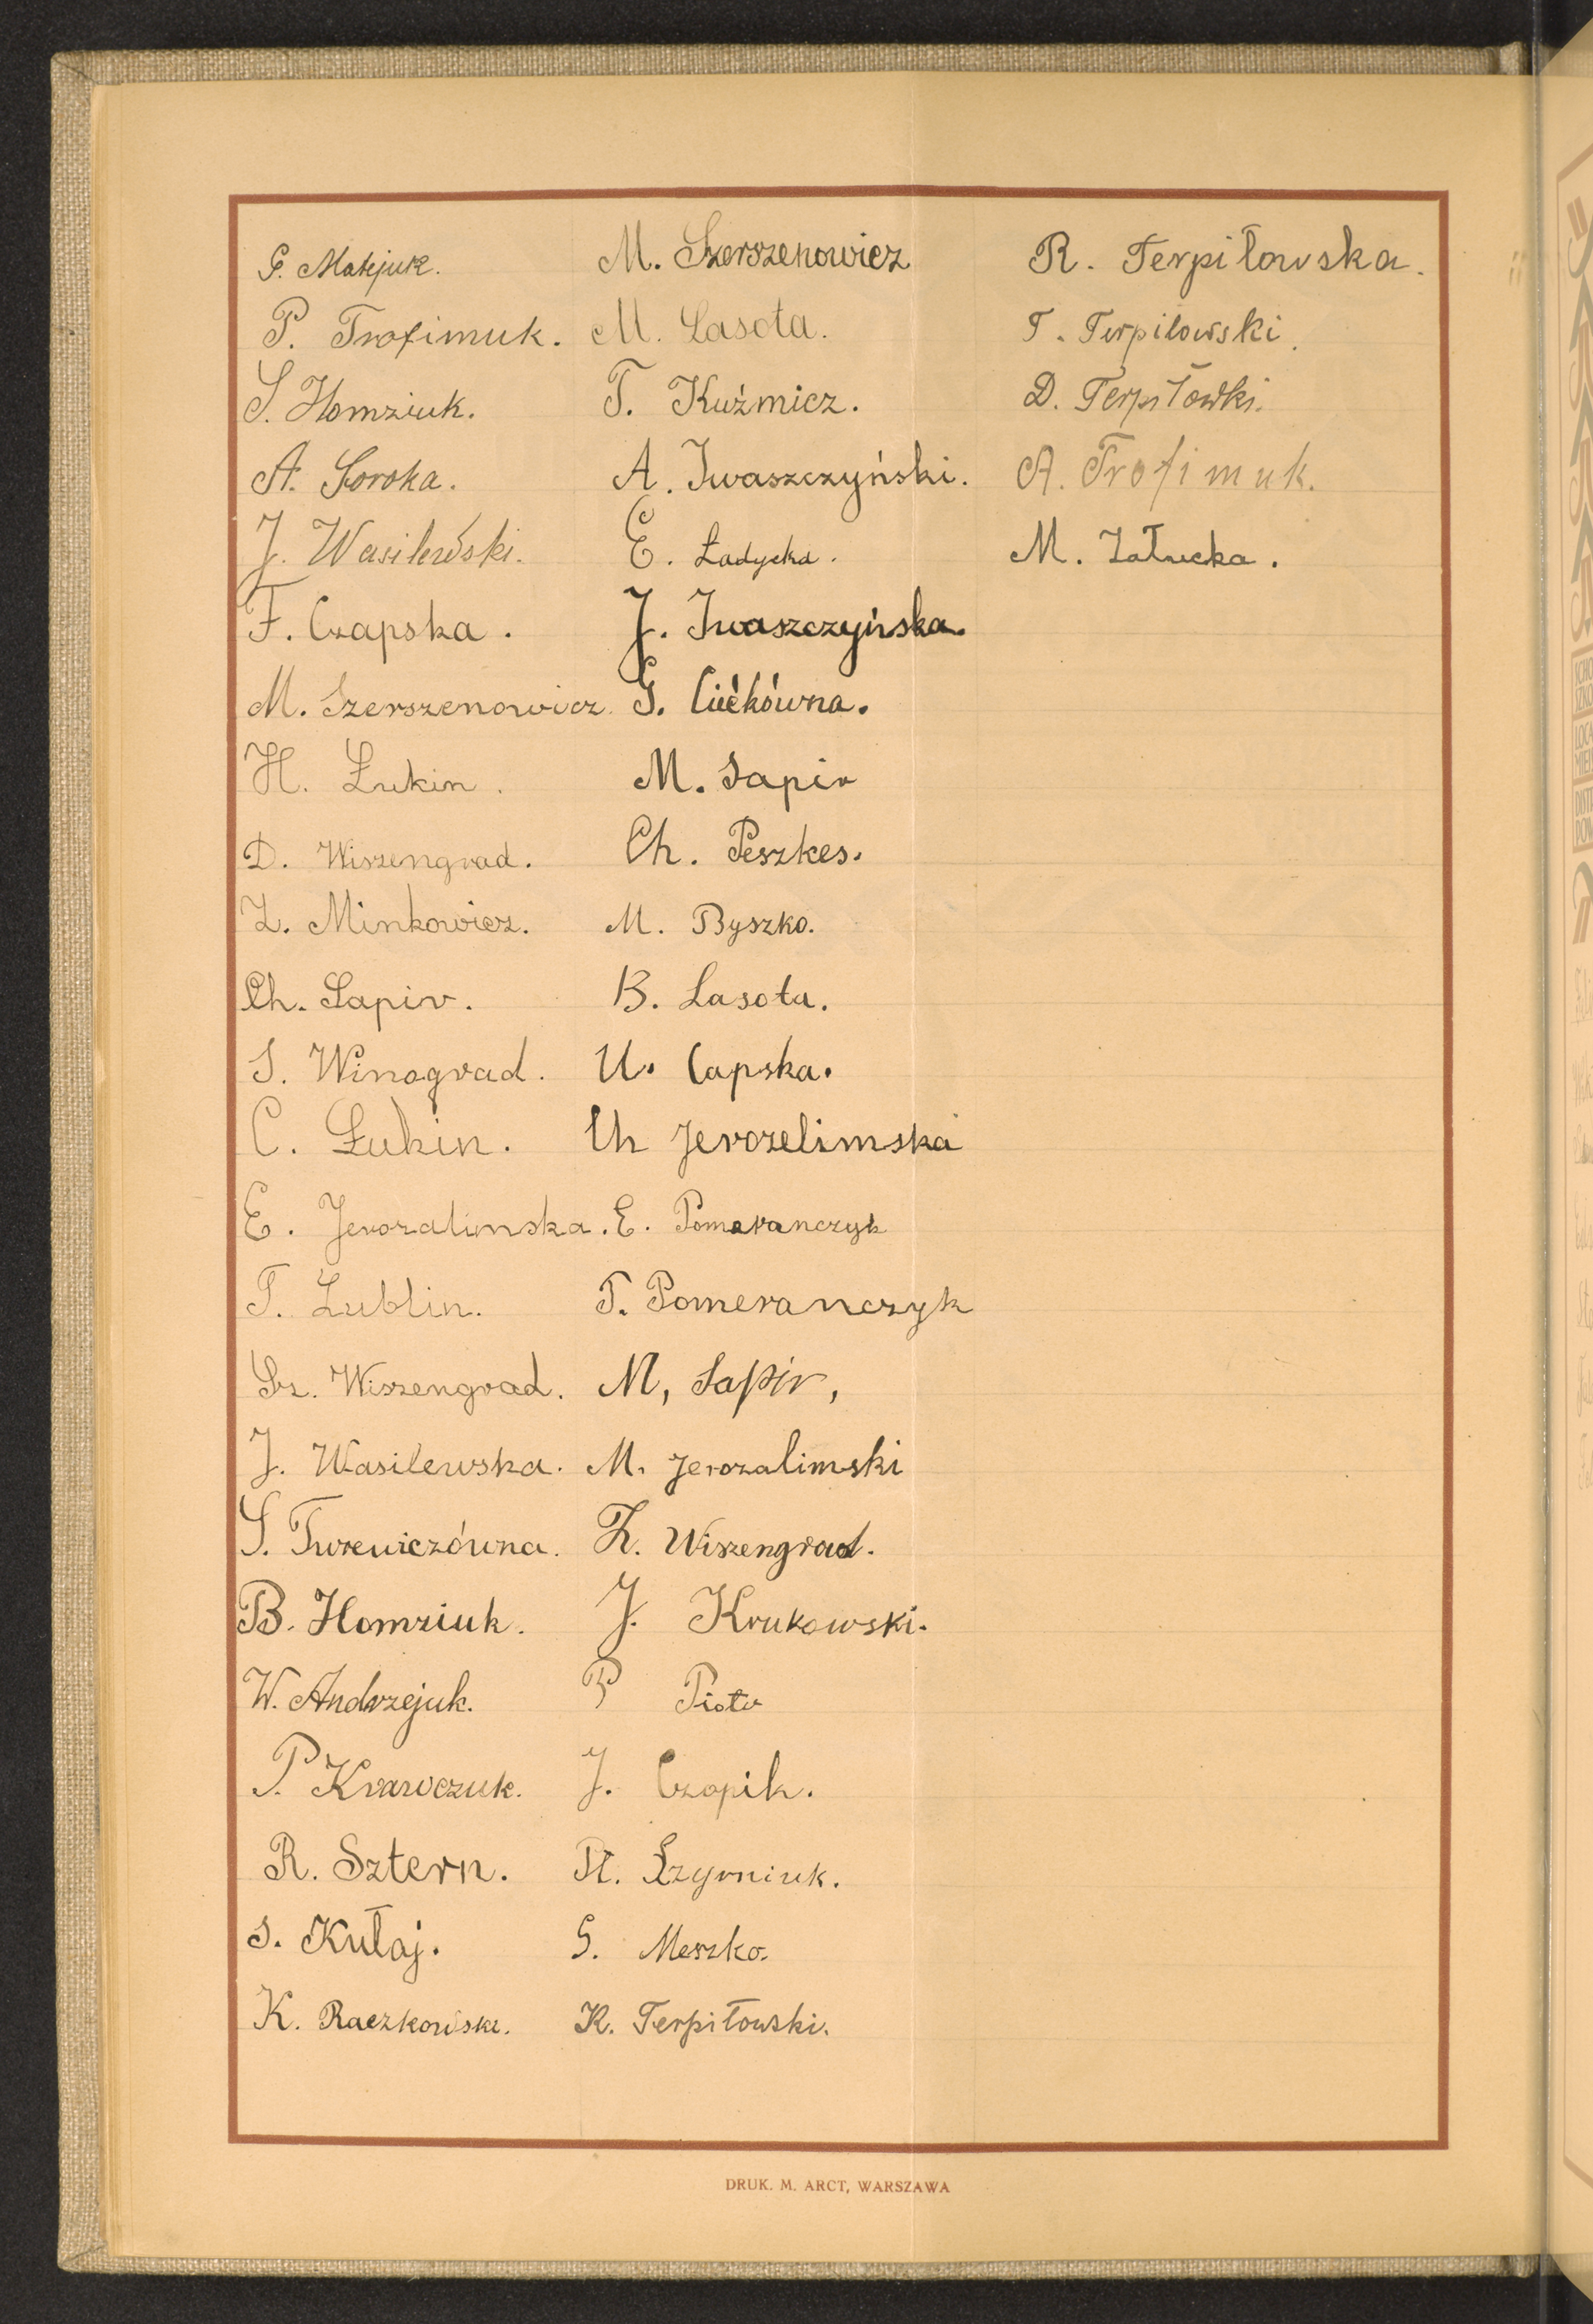 G. Matejuk.
P. Trofimuk.
S. Homziuk.
A. Soroka.
J. Wasilewski.
F. Czapska.
M. Szerszenowicz.
H. Łukin.
D. Wiszengrad.
Z. Minkowicz.
Ch. Sapir.
S. Winograd.
C. Łukin.
E. Jerozalimska.
T. Lublin.
Sz. Wiszengrad.
J. Wasilewska.
S. Turewiczówna.
B. Homziuk.
W. Andrzejuk.
P. Krawczuk.
R. Sztern.
S. Kułaj.
K. Raczkowski.
M. Szerszenowicz
M. Lasota.
T. Kuźmicz.
A. Iwaszczyński.
E. Ładycka.
J. Iwaszczyńska.
G.
M. Sapir
Ch. Peszkes.
M. Byszko.
B. Lasota.
U. Capska.
Ch Jerozelimska
E. Pomeranczyk
T. Pomeranczyk
M, Sapir,
M. Jerozalimski
Z. Wiszengrad.
J. Krukowski.
P Piotr
J. Czopik.
Szyrniuk.
G. Meszko.
K. Terpiłowski.
R. Terpiłowska.
T. Terpilowski.
D. Terpiłowki.
A. Trofimuk.
M. Załucka.
DRUK. M. ARCT, WARSZAWA